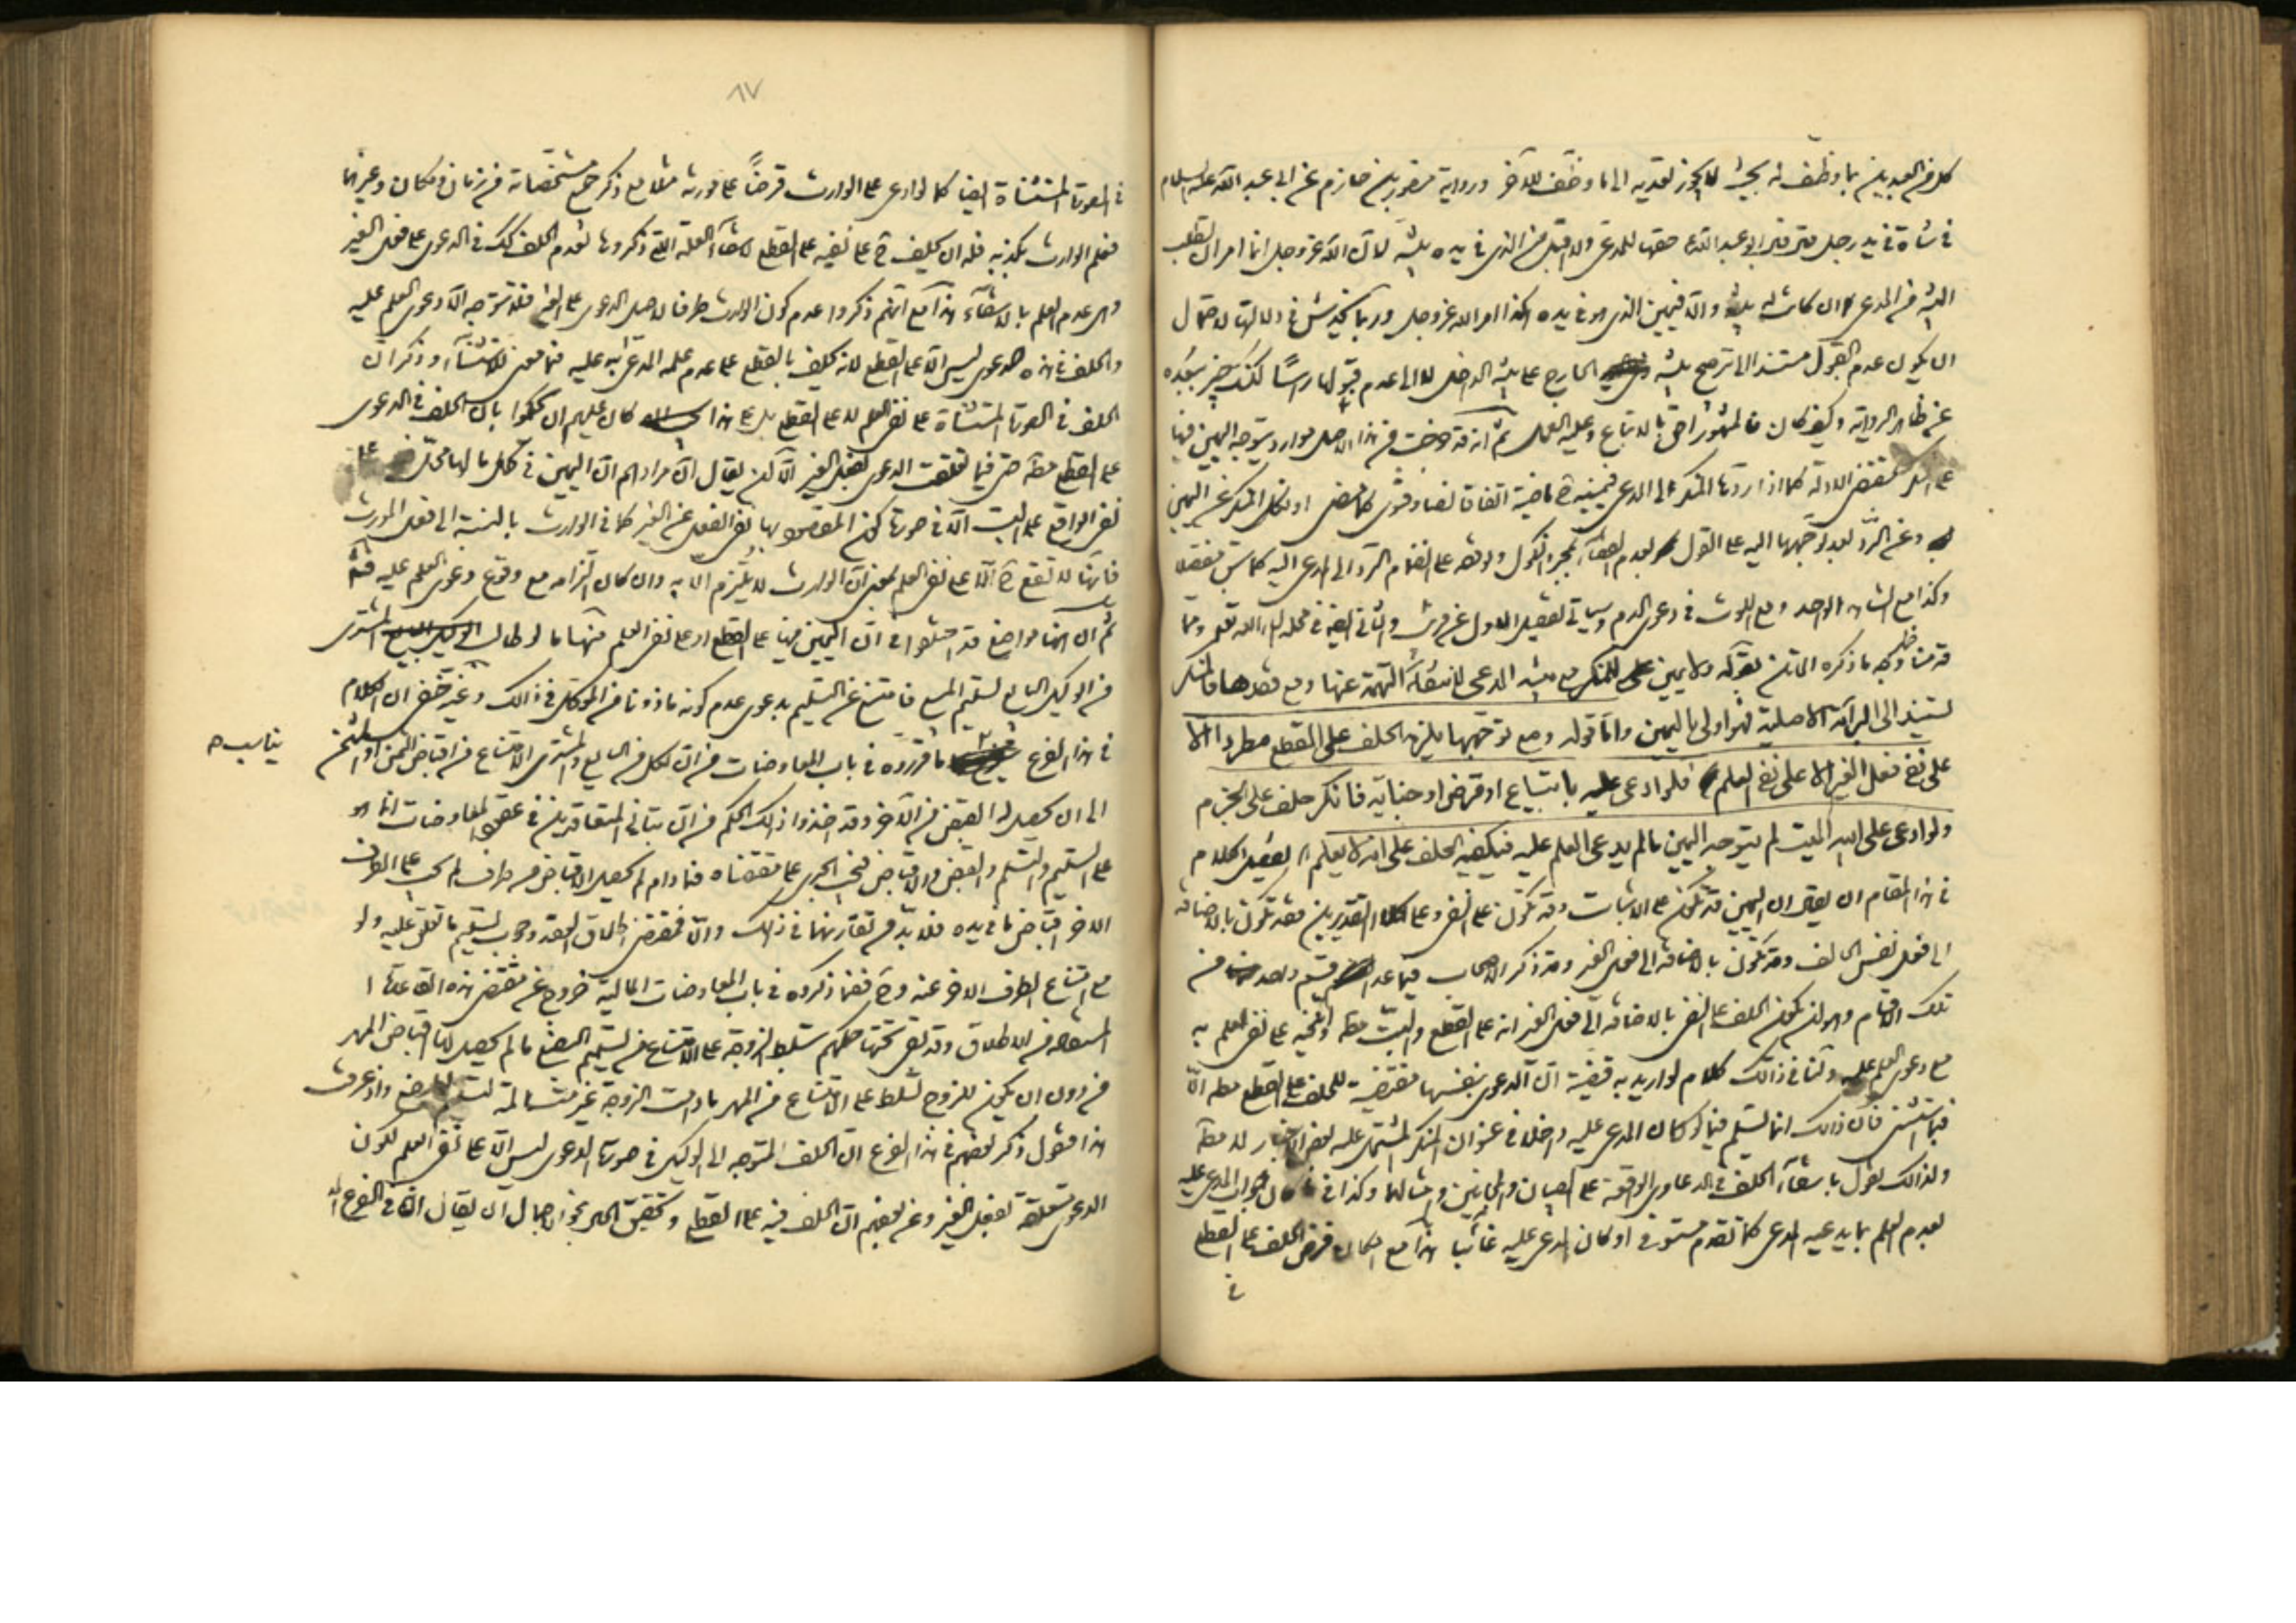 كل من العبدين بما وظف له بحيث لا يجوز تعديه الى ما وظف للآخر ورواية منصور بن حازم عن ابي عبد الله عليه السلام
في شاة في يد رجل حقها للمدعي ولا اقبل من الذي في يده بينة لان الله عز وجل انما امر ان تطلب
البينة من المدعي فان كانت له بينة والا فيمين الذي هو في يده هكذا امر الله عز وجل وربما يخدش في دلالتها لاحتمال
ان يكون عدم القبول مستندا الى ترجيح بينة الخارج على بينة الداخل لا الى عدم قبولها راسا لكنك خبير ببعده
عن ظاهر الرواية وكيف كان فالمشهور احق بالاتباع وعليه العمل ثم انه قد خرجت من هذا الاصل موارد يتوجه اليمين فيها
على مقتضى الادلة كما اذا ردها المنكر الى المدعي فيمينه ح ماضية اتفاقا نصا وفتوى كما مضى او نكل المنكر عن اليمين
وعن الرد بعد توجهها اليه على القول بعدم القضاء بمجرد النكول وتوقفه على انضمام الرد الى المدعي اليه كما سبق مفصلا
وكذا مع الشاهد الواحد ومع اللوث في دعوى الدم وسياتي تفصيل الاول عن قريب والثاني ايضا في محله ان شاء الله تعالى ومما
قدمنا ظهر وجه ما ذكره الماتن بقوله ولا يمين على المنكر مع بينة المدعي لانتفاء التهمة عنها ومع فقدها فالمنكر
يستند الى البرائة الاصلية فهو اولى باليمين واما قوله ومع توجهها يلزمه الحلف على القطع مطردا الا
على نفي فعل الغير الا على نفي العلم فلو ادعى عليه بابتياع او قرض او جناية فانكر حلف على الجزم
ولو ادعى على ابيه الميت لم يتوجه اليمين ما لم يدعي العلم عليه فيكفيه الحلف على انه لا يعلم تفصيل الكلام
في هذا المقام ان يقال ان اليمين قد تكون على الاثبات وقد تكون على النفي وعلى كلا التقديرين فقد تكون بالاضافة
الى فعل نفس الحالف وقد تكون بالاضافة الى فعل الغير وقد ذكر الاصحاب فيما عدا قسم واحد من
تلك الاقسام وهو ان يكون الحلف على النفي بالاضافة الى فعل الغير انه على القطع والبت مطه وفيه على نفي العلم به
مع دعوى العلم عليه ولنا في ذالك كلام لو اريد به قضية ان الدعوى بنفسها مقتضية للحلف على القطع مطه الا
فيما استثنى فان ذالك انما يسلم فيما لو كان المدعى عليه داخلا في عنوان المنكر المشتمل عليه بعض الاخبار لا مطه
ولذالك نقول بانتفاء الحلف في الدعاوي الواقعة على الصبيان والمجانين وامثالهما وكذا في جواب المدعى عليه
بعدم العلم بما يدعيه المدعي كما تقدم مستوفى او كان المدعى عليه غائبا هذا مع امكان فرض الحلف على القطع
في
٨٧
في الصورة المستثناة ايضا كما لو ادعى على الوارث قرضا على مورثه مثلا مع ذكر جميع مشخصاته من زمان ومكان وغيرهما
فعلم الوارث بكذبه فله ان يحلف ح على نفيه على القطع لانتفاء العلة التي ذكروها لعدم الحلف كك في الدعوى على فعل الغير
وهي عدم العلم بالانتفاء هذا مع انهم ذكروا عدم كون الوارث طرفا لاصل الدعوى على الغير فلا تتوجه الا دعوى العلم عليه
والحلف في هذه الدعوى ليس الا على القطع لانه يحلف بالقطع على عدم علمه المدعى به عليه فما معنى للاستثناء وذكر ان
الحلف في الصورة المستثناة على نفي العلم لا على القطع بل على هذا كان عليهم ان يحكموا بان الحلف في الدعوى
على القطع مطه حتى فيما تعلقت الدعوى بفعل الغير الا ان يقال ان مرادهم ان اليمين في كل ما لها محل على
نفي الواقع على البت الا في صورة كون المقصود بها نفي الفعل عن الغير كما في الوارث بالنسبة الى فعل المورث
فانها لا تقع ح الا على نفي العلم بمعنى ان الوارث لا يلتزم الا به وان كان التزامه مع وقوع دعوى العلم عليه فت
ثم ان هنا مواضع قد اختلفوا في ان اليمين فيها على القطع او على نفي العلم منها ما لو طالب المشتري
من الوكيل البايع تسليم المبيع فامتنع عن التسليم بدعوى عدم كونه ماذونا من الموكل في ذالك وغير خفي ان الكلام
في هذا الفرع ما قرروه في باب المعاوضات من ان لكل من البايع والمشتري الامتناع من اقباض الثمن او المثمن
يناسب ه
الى ان يحصل له القبض من الآخر وقد اخذوا ذالك الحكم من ان بناء المتعاقدين في عقود المعاوضات انما هو
على التسليم والتسلم والقبض والاقباض فيجب الجري على مقتضاه فما دام لم يحصل الاقباض من طرف لم يجب على الطرف
الاخر اقباض ما في يده فلا بد من تقارنهما في ذالك والا فمقتضى اطلاق العقد وجوب تسليم ما تعلق عليه ولو
مع امتناع الطرف الاخر عنه وح فما ذكروه في باب المعاوضات المالية خروج عن مقتضى هذه القاعدة
المستفادة من الاطلاق وقد بقي تحتها حكمهم بتسلط الزوجة على الامتناع عن تسليم البضع ما لم يحصل لها اقباض المهر
من دون ان يكون للزوج تسلط على الامتناع من المهر ما دامت الزوجة غير واذ عرفت
هذا فنقول ذكر بعضهم في هذا الفرع ان الحلف المتوجه الى الوكيل في صورة الدعوى ليس الا على نفي العلم لكون
الدعوى متعلقة بفعل الغير وعن بعضهم ان الحلف فيه على القطع وتحقيق الامر بنحو الاجمال ان يقال ان في الفرع